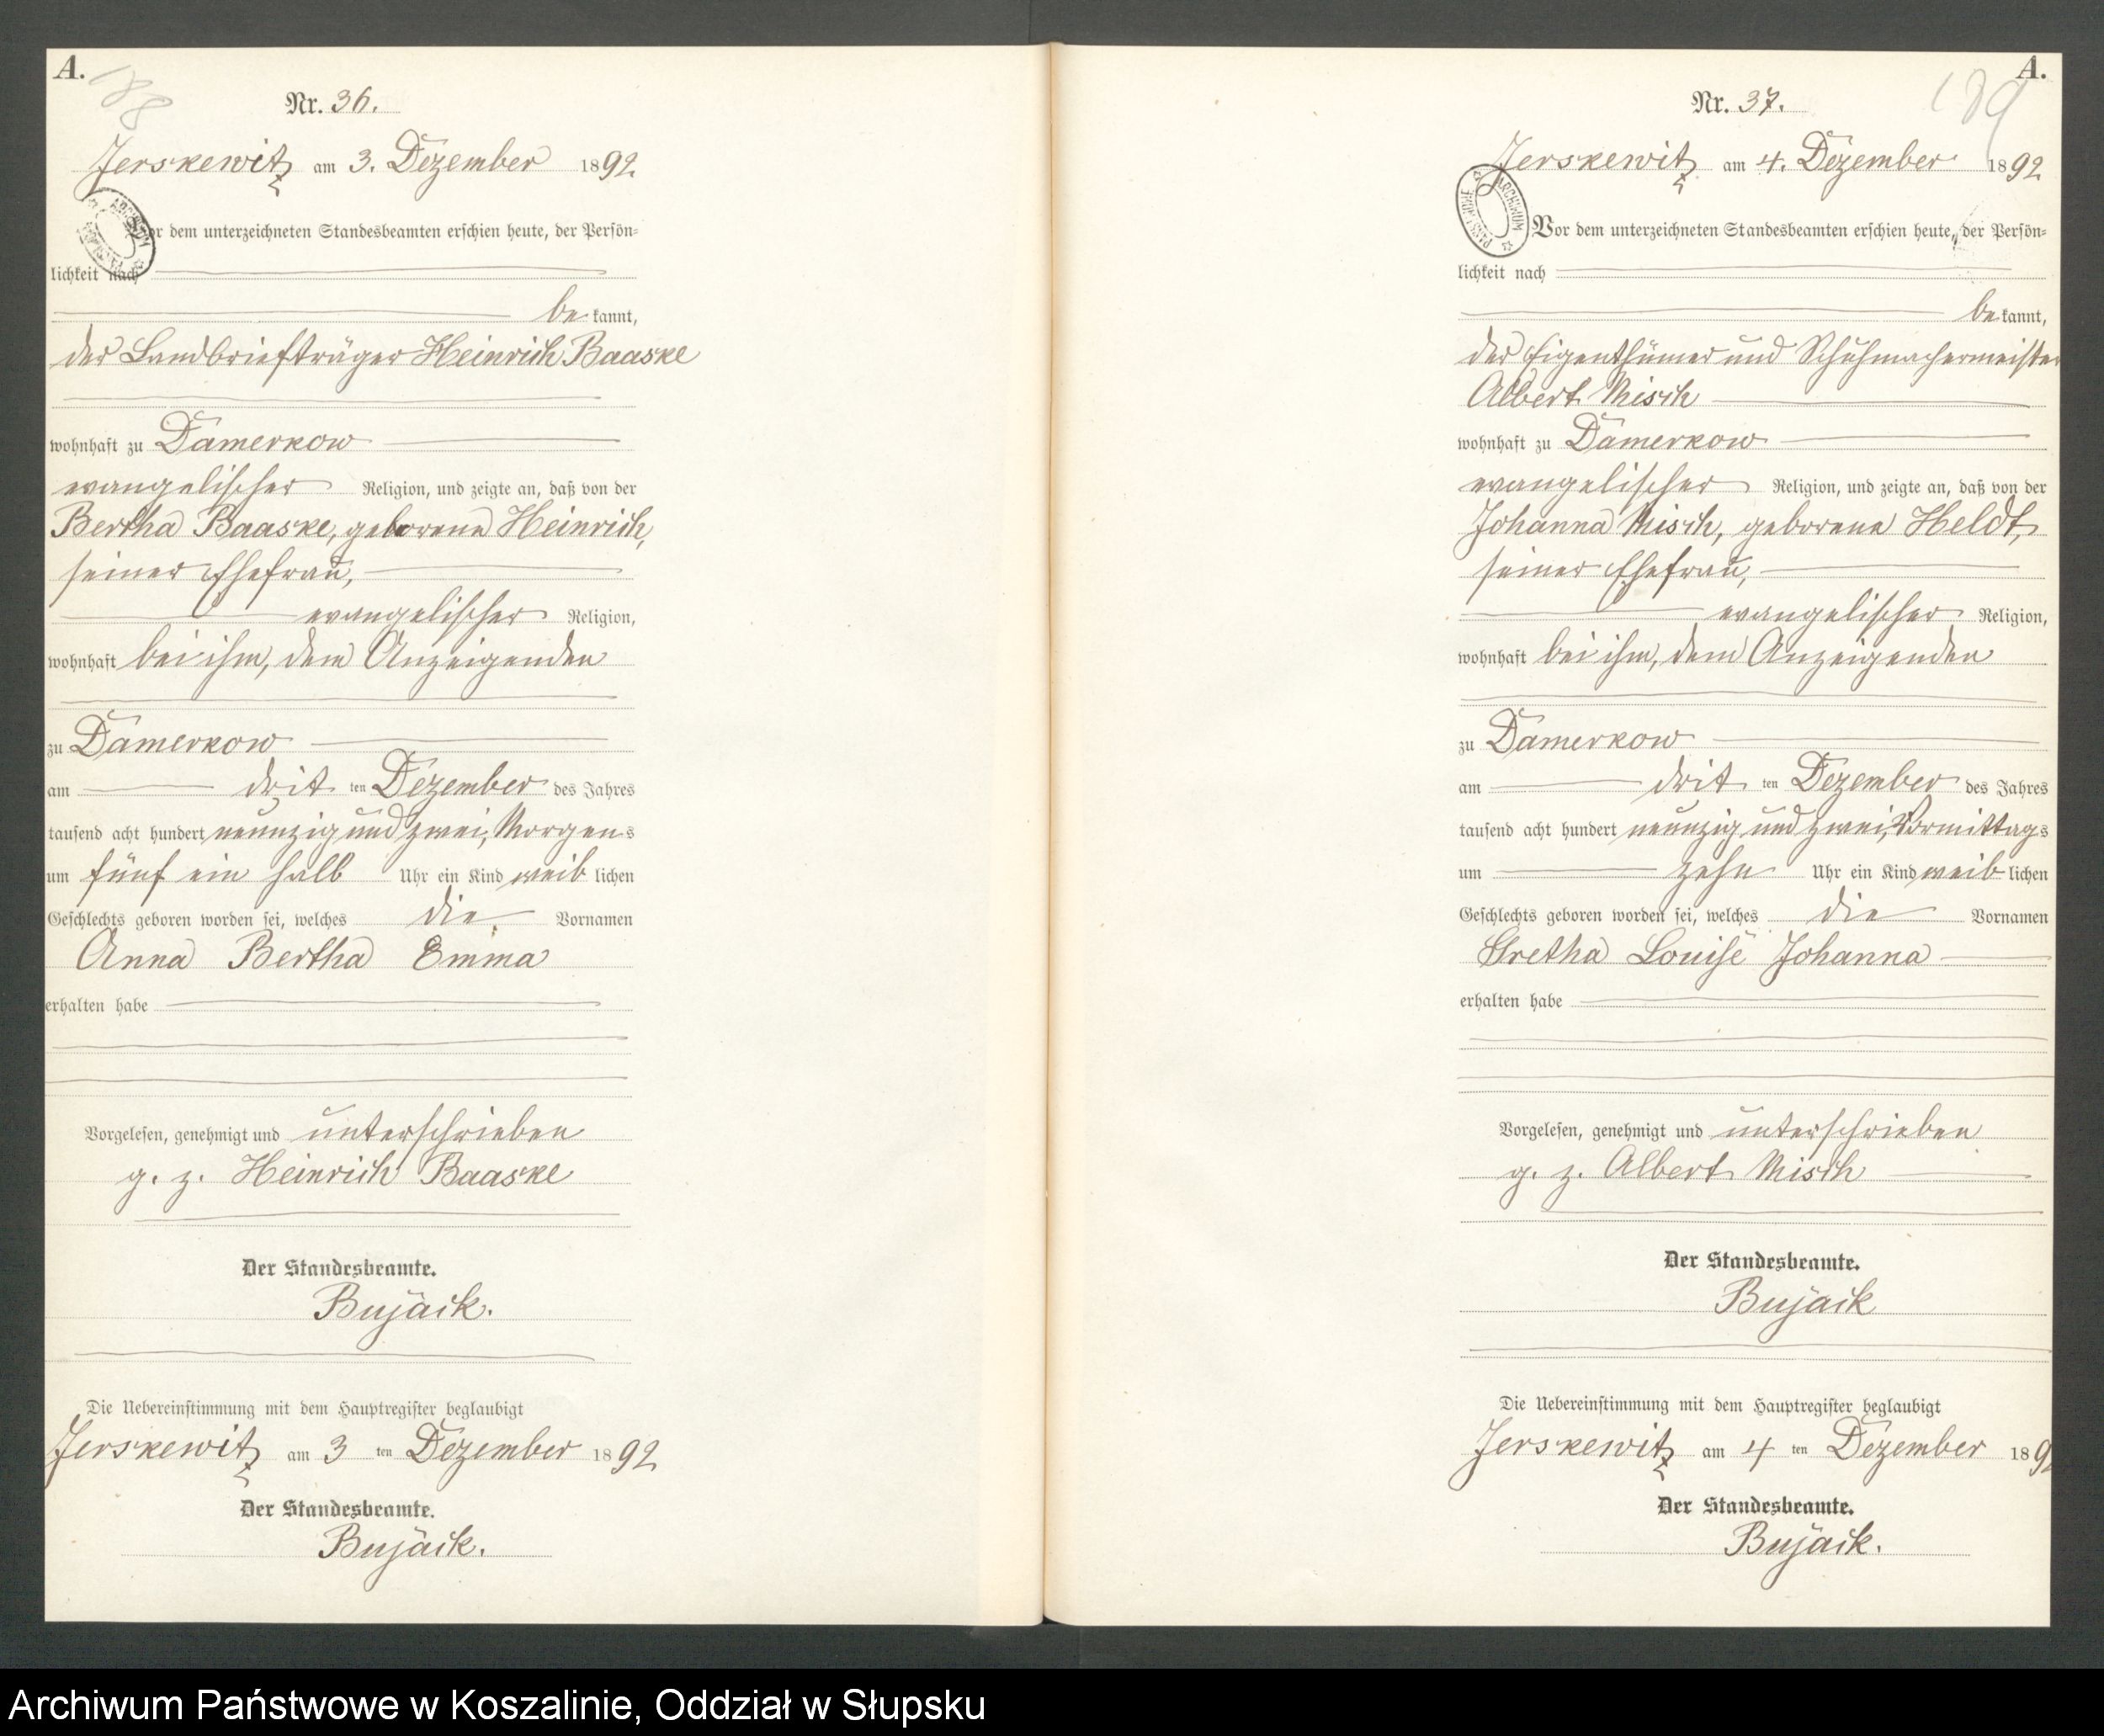 A.
188
Nr. 36.
Jerskewitz am 3. Dezember 1892
Vor dem unterzeichneten Standesbeamten erschien heute, der Persön-
lichkeit nach
be kannt,
der Landbriefträger Heinrich Baaske
wohnhaft zu Damerkow
evangelischer Religion, und zeigte an, daß von der
Bertha Baaske, geborene Heinrich,
seiner Ehefrau,
evangelischer Religion,
wohnhaft bei ihm, dem Anzeigenden
zu Damerkow
am drit ten Dezember des Jahres
tausend acht hundert neunzig und zwei, Morgens
um fünf ein halb Uhr ein Kind weib lichen
Geschlechts geboren worden sei, welches die Vornamen
Anna Bertha Emma
erhalten habe
Vorgelesen, genehmigt und unterschrieben
g. z. Heinrich Baaske
Der Standesbeamte.
Bujack.
Die Uebereinstimmung mit dem Hauptregister beglaubigt
Jerskewitz am 3 ten Dezember 1892
Der Standesbeamte.
Bujack.
A.
189
Nr. 37.
Jerskewitz am 4. Dezember 1892
ARCHIWUM PAŃSTWOWE
Vor dem unterzeichneten Standesbeamten erschien heute, der Persön-
lichkeit nach
be kannt,
der Eigenthümer und Schuhmachermeister
Albert Misch
wohnhaft zu Damerkow
evangelischer Religion, und zeigte an, daß von der
Johanna Misch, geborene Heldt,
seiner Ehefrau,
evangelischer Religion,
wohnhaft bei ihm, dem Anzeigenden
zu Damerkow
am drit ten Dezember des Jahres
tausend acht hundert neunzig und zwei, Vormittags
um zehn Uhr ein Kind weib lichen
Geschlechts geboren worden sei, welches die Vornamen
Gretha Louise Johanna
erhalten habe
Vorgelesen, genehmigt und unterschrieben
g. z. Albert Misch
Der Standesbeamte.
Bujack
Die Uebereinstimmung mit dem Hauptregister beglaubigt
Jerskewitz am 4 ten Dezember 1892
Der Standesbeamte.
Bujack.
Archiwum Państwowe w Koszalinie, Oddział w Słupsku